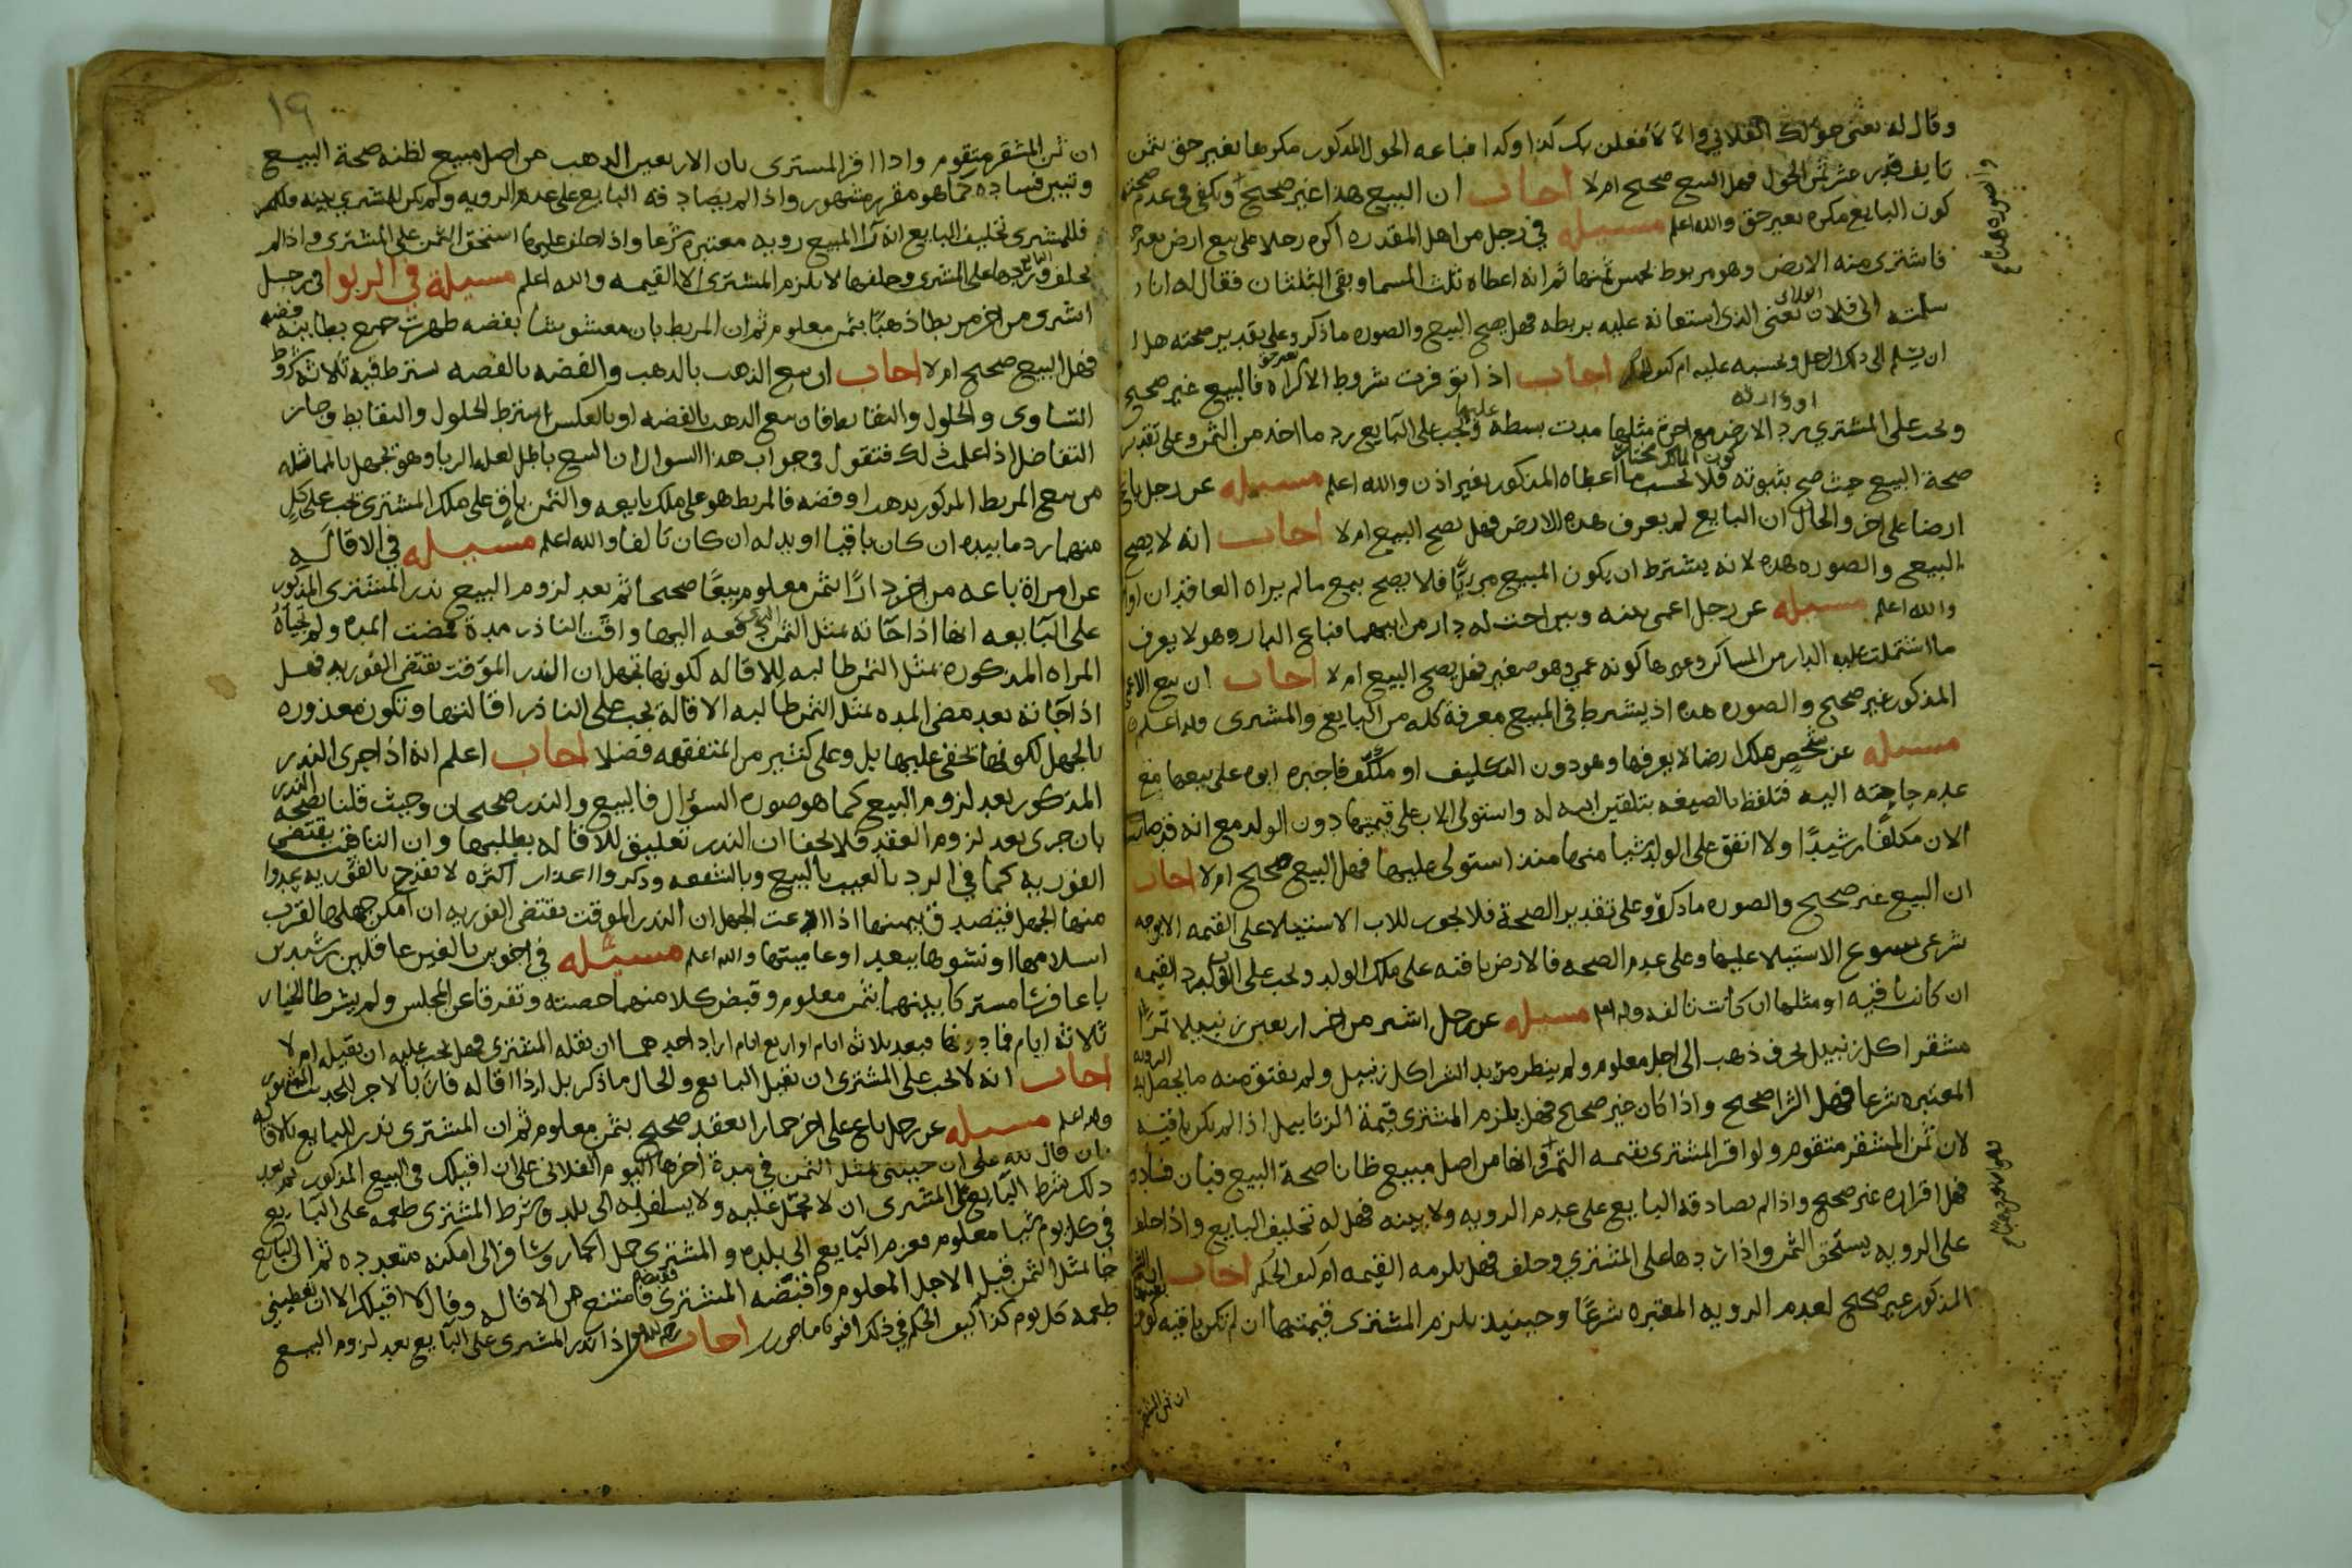 وقال له بعني حولك الفلاني والا لأفعلن بك كذا وكذا فباعه الحول المذكور مكرها بغير حق بثمن
قدر عشر ثمن الحول فهل البيع صحيح ام لا اجاب ان البيع هذا غير صحيح ويكفي في عدم صحته
كون البايع مكره بغير حق والله اعلم مسيله في رجل من اهل المقدره اكره رجلا على بيع ارض
فاشترى منه الارض وهو مربوط بخمس ثمنها ثم انه اعطاه ثلث المسما وبقي الثلثان فقال له انا
سلمته الى فلان يعني الذي استعانه عليه بربطه فهل يصح البيع والصوره ما ذكر وعلى تقدير صحته هل
ان يسلم الى ذلك الرجل ويحسبه عليه ام كيف الحكم اجاب اذا توفرت شروط الاكراه فالبيع غير صحيح
ويجب على المشتري رد الارض مع اجرة مثلها مدت بسطه عليها ويجب على البايع رد ما اخذ من الثمن وعلى تقدير
صحة البيع حيث صح بثبوته فلا يحسب ما اعطاه المذكور بغير اذن والله اعلم مسيله عن رجل باع
ارضا على اخر والحال ان البايع لم يعرف هذه الارض فهل يصح البيع ام لا اجاب انه لا يصح
البيع والصوره هذه لانه يشترط ان يكون المبيع مريًّا فلا يصح بيع ما لم يراه العاقدان او
والله اعلم مسيله عن رجل اعمى بينه وبين اخت له دار من ابيهما فباع الدار وهو لا يعرف
ما اشتملت عليه الدار من المساكن وغيرها كونه عمي وهو صغير فهل يصح البيع ام لا اجاب ان بيع الاعمى
المذكور غير صحيح والصوره هذه اذ يشترط في المبيع معرفة كله من البايع والمشتري والله اعلم
مسيله عن شخص ملك ارضا لا يعرفها وهو دون التكليف او مكلّف فاجبره ابوه على بيعها مع
عدم حاجته اليه فتلفظ بالصيغه بتلقين ابيه له واستولى الاب على قيمتها دون الولد مع انه قد صار
الان مكلفًا رشيدًا ولا انفق على الولد شيا منها منذ استولى عليها فهل البيع صحيح ام لا اجاب
ان البيع غير صحيح والصوره ما ذكر وعلى تقدير الصحة فلا يجوز للاب الاستيلا على القيمه الا بوجه
شرعي يسوغ الاستيلا عليها وعلى عدم الصحه فالارض باقيه على ملك الولد ويجب على الوالد رد القيمه
ان كانت باقيه او مثلها ان كانت تالفه والله اعلم مسيله عن رجل اشترى من اخر اربعين زنبيلا تمرًا
مشقر اكل زنبيل بحرف ذهب الى اجل معلوم ولم ينظر مريد الشرا كل زنبيل ولم يفتق منه ما يحصل به الرويه
المعتبره شرعا فهل الشرا صحيح واذا كان غير صحيح فهل يلزم المشتري قيمة الزنابيل اذا لم تكن باقيه
لان ثمن المشقر متقوم ولو اقر المشتري بقيمه التمر وانها من اصل مبيع ظانا صحة البيع فبان فساده
فهل اقراره غير صحيح واذا لم يصادقه البايع على عدم الرويه ولا بينه فهل له تحليف البايع واذا حلف
على الرويه يستحق الثمن واذا ردها على المشتري وحلف فهل يلزمه القيمه ام كيف الحكم اجاب
المذكور غير صحيح لعدم الرويه المعتبره شرعًا وحينيذ يلزم المشتري قيمتها ان لم تكن باقيه كون
ان ثمن المشقر
١٩
ان ثمن المشقر متقوم واذا اقر المشتري بان الاربعين الذهب من اصل مبيع لظنه صحة البيع
وتبين فساده كما هو مقرر مشهور واذا لم يصادقه البايع على عدم الرويه ولم يكن للمشتري بينه
فللمشتري تحليف البايع انه را المبيع رويه معتبره شرعا واذا حلف عليها استحق الثمن على المشتري واذا لم
يحلف وردها على المشتري وحلفها لا يلزم المشتري الا القيمه والله اعلم مسيلة في الربوا في رجل
اشترى من اخر مربطا ذهبًا بثمن معلوم ثم ان المربط بان مغشوشا بفضه ظهرت جميع بطاينه فضه
فهل البيع صحيح ام لا اجاب ان بيع الذهب بالذهب والفضه بالفضه يشترط فيه ثلاثة شروط
التساوي والحلول والتقابض فان بيع الذهب بالفضه او بالعكس اشترط الحلول والتقابض وجاز
التفاضل اذا علمت ذلك فتقول في جواب هذا السوال ان البيع باطل لعلة الربا وهو تجهل بالمماثله
من بيع المربط المذكور بذهب او فضه فالمربط هو على ملك بايعه والثمن باق على ملك المشتري يجب على كلٍ
منهما رد ما بيده ان كان باقيا او بدله ان كان تالفا والله اعلم مسيله في الاقاله
عن امراة باعه من اخر دارًا بثمن معلوم بيعًا صحيحا ثم بعد لزوم البيع نذر المشتري المذكور
على البايعه انها اذا جاته بمثل الثمن الذي دفعه اليها واقت الناذر مدة فمضت المده ولم تجياه
المراه المذكوره بمثل الثمن طالبه للاقاله لكونها تجهل ان النذر الموقت يقتضي الفوريه فهل
اذا جاته بعد مضي المده بمثل الثمن طالبه الاقالة يجب على الناذر اقالتها وتكون معذوره
بالجهل لكونها تخفى عليها بل وعلى كثير من المتفقهه فضلا اجاب اعلم انه اذا جرى النذر
المذكور بعد لزوم البيع كما هو صورة السؤال فالبيع والنذر صحيحان وحيث قلنا بصحة النذر
بان جرى بعد لزوم العقد فلا يخفا ان النذر تعليق للاقاله بطلبها وان التاقيت يقتضي
الفوريه كما في الرد بالعيب بالبيع وبالشفعه وذكروا اعذار اكثره لا تقدح بالفوريه عدوا
منها الجهل فتصدق بيمينها اذا ادعت الجهل ان النذر الموقت يقتضي الفوريه ان امكن جهلها لقرب
اسلامها او نشوها ببعيد او عاميتها والله اعلم مسيله في اخوين بالغين عاقلين رشيدين
باعا فرسًا مشتركا بينهما بثمن معلوم وقبض كلا منهما حصته وتفرقا عن المجلس ولم يشرطا الخيار
ثلاثة ايام فما دونها فبعد ثلاثة ايام او اربع ايام اراد احدهما ان يقله المشتري فهل يجب عليه ان يقيله ام لا
اجاب انه لا يجب على المشتري ان يقبل البايع والحال ما ذكر بل اذا اقاله فاز بالاجر للحديث المشهور
والله اعلم مسيله عن رجل باع على اخر حمار العقد صحيح بثمن معلوم ثم ان المشتري نذر للبايع بالاقاله
بان قال لله علي ان جيتني بمثل الثمن في مدة اخرها اليوم الفلاني علي ان اقيلك في البيع المذكور ثم بعد
ذلك شرط البايع على المشتري ان لا يحمّل عليه ولا يسافر به الى بلد وشرط المشتري طعمه على البايع
في كل يوم شيا معلوم فعزم البايع الى بلده والمشتري حمل الحمار وسافر الى امكنه متعدده ثم الى البايع
جا مثل الثمن قبل الاجل المعلوم واقبضه المشتري فامتنع من الاقاله وقال لا اقيلك الا ان تعطيني
طعمه كل يوم كذا كيف الحكم في ذلك افتونا ماجورين اجاب اذا نذر المشتري على البايع بعد لزوم البيع